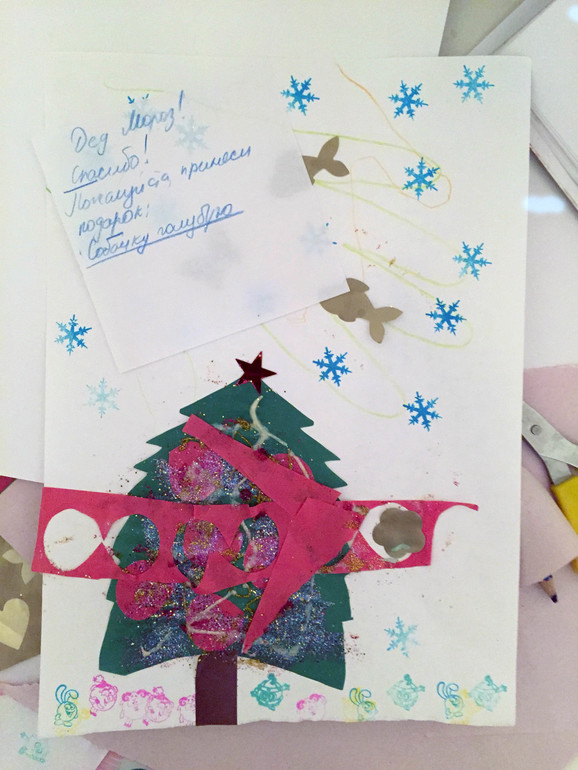 Дед Мороз!
Спасибо!
Пожалуйста, принеси
подарок:
Собачку голубую